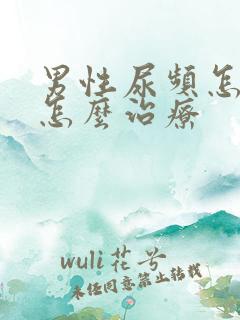 男性尿頻怎
怎麼治療
wuli花兮
未经同意禁止转载